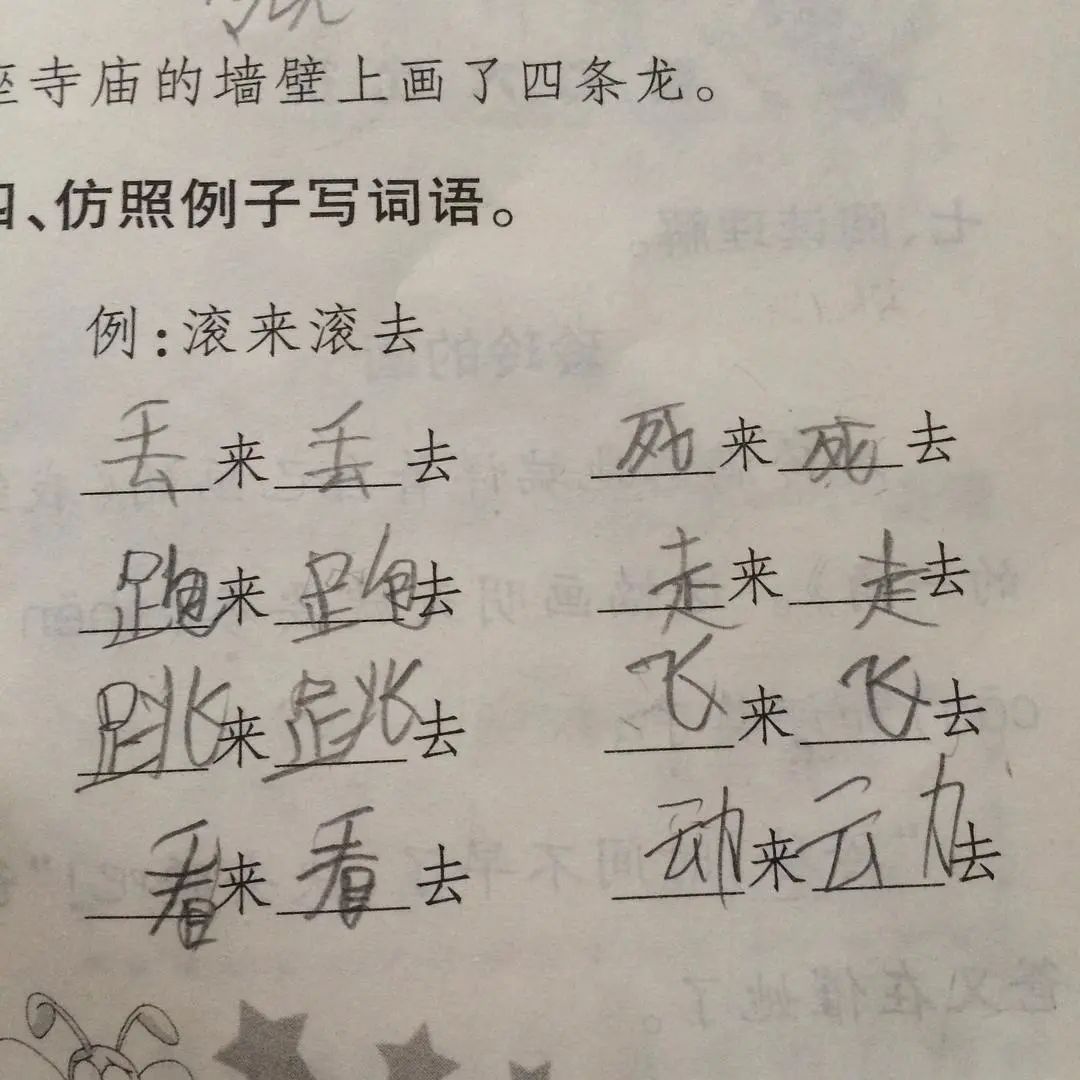 座寺庙的墙壁上画了四条龙。
四、仿照例子写词语。
例：滚来滚去
丢来丢去 死来死去
跑来跑去 走来走去
跳来跳去 飞来飞去
看来看去 动来动去